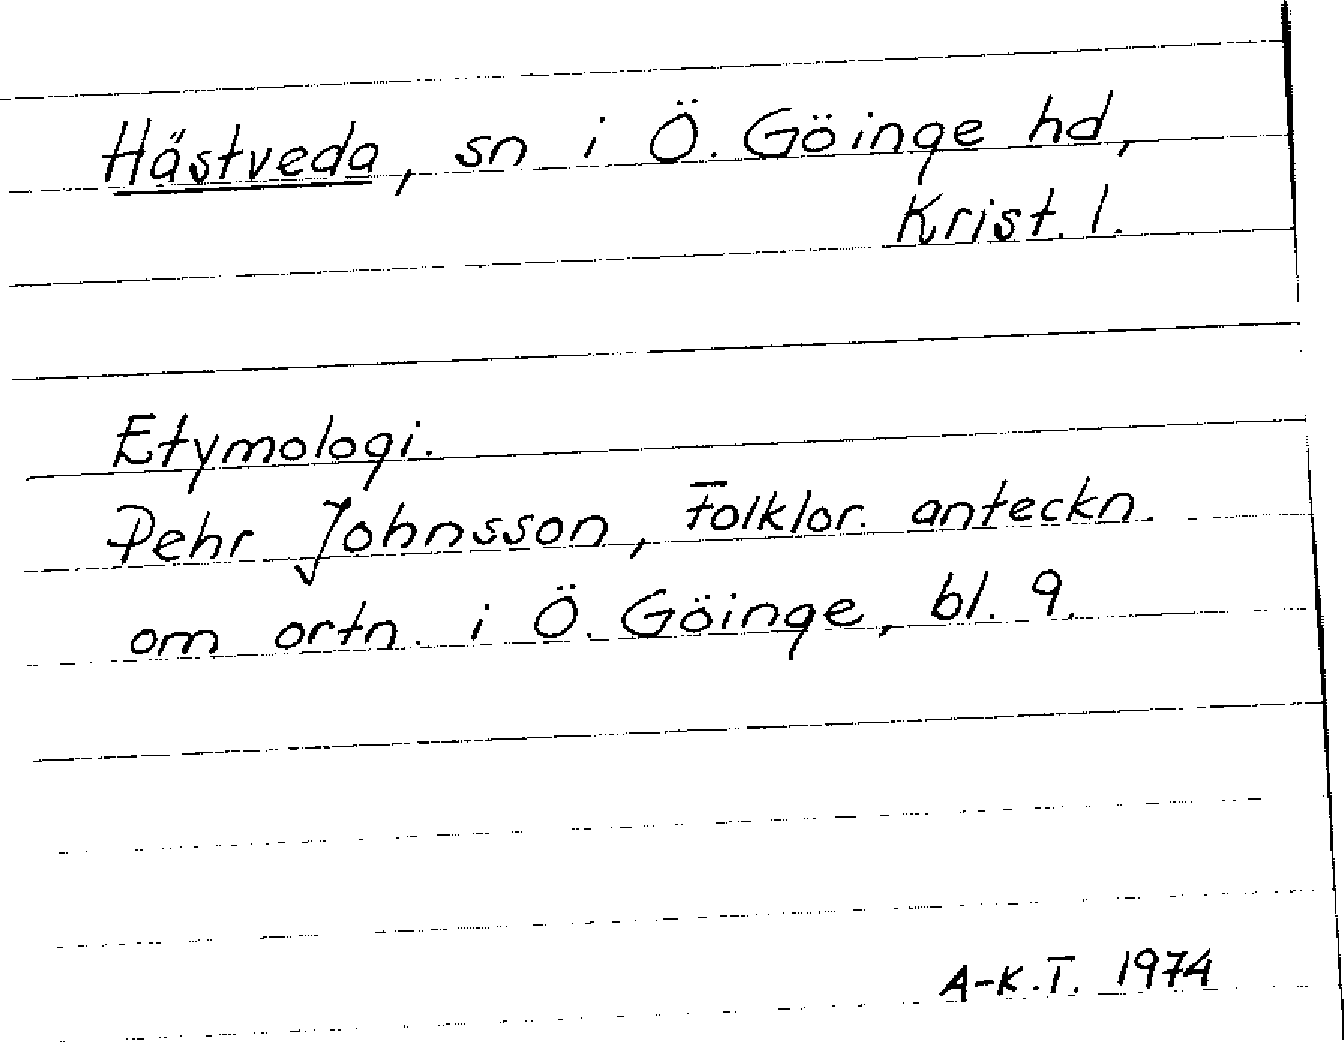 Hästveda, sn i Ö. Göinge hd,
Krist. l.
Etymologi.
Pehr Johnsson, Folklor. anteckn.
om ortn. i Ö. Göinge, bl. 9.
A-K.T. 1974